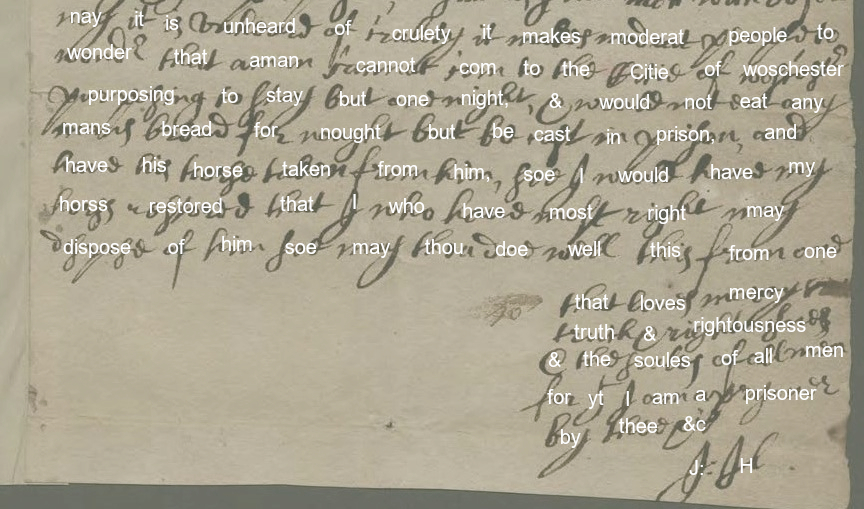 nay it is unheard of crulety it makes moderat people to
wonder that aman cannot com to the Citie of woschester
purposing to stay but one night, & would not eat any
mans bread for nought but be cast in prison, and
have his horse taken from him, soe I would have my
horss restored that I who have most right may
dispose of him soe may thou doe well this from one
that loves mercy
truth & rightousness
& the soules of all men
for yt I am a prisoner
by thee &c
J: H